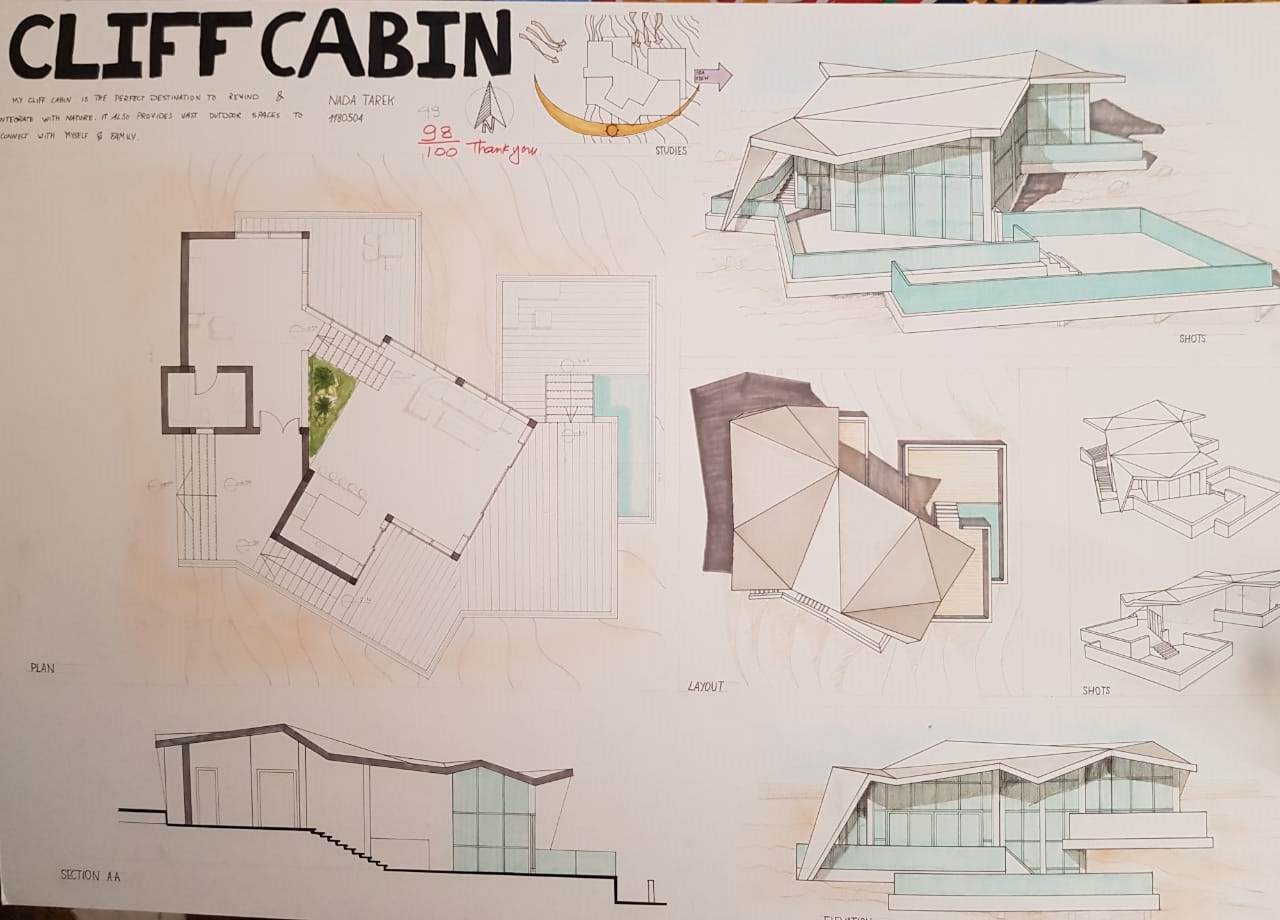 CLIFF CABIN
MY CLIFF CABIN IS THE PERFECT DESTINATION TO REWIND &
NTEGRATE WITH NATURE. IT ALSO PROVIDES VAST OUTDOOR SPACES TO
CONNECT WITH MYSELF & FAMILY.
NADA TAREK
1180504
49
98
100 Thank you
N
SEA
VIEW
STUDIES
SHOTS
PLAN
LAYOUT
SHOTS
SECTION A-A
ELEVATION